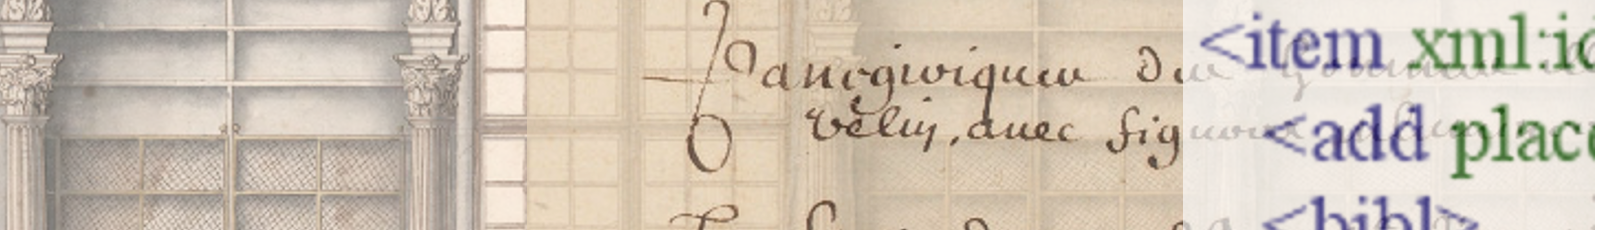 Panegirique du
velin, avec fig
<item xml:id
<add place
<bibl>